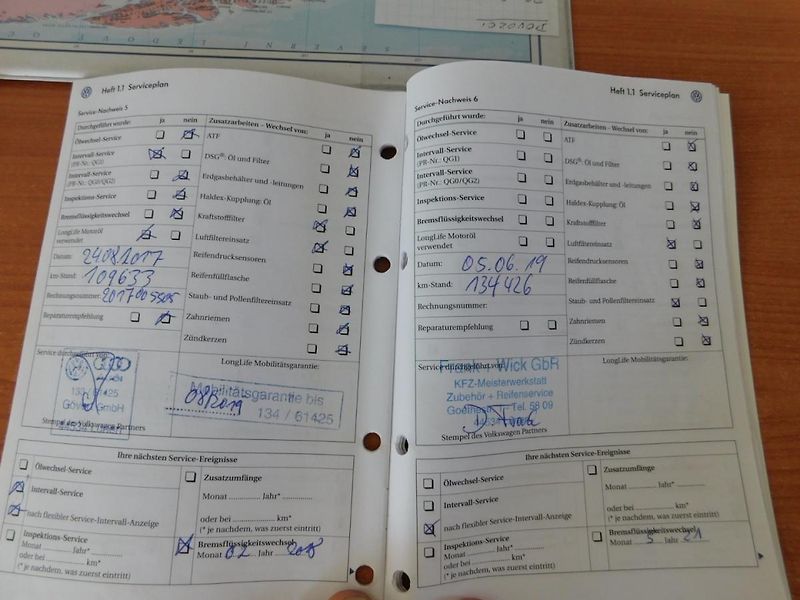 Heft 1.1 Serviceplan
Service-Nachweis 5
Durchgeführt wurde: ja nein
Ölwechsel-Service
Intervall-Service
(PR-Nr.: QG1)
Intervall-Service
(PR-Nr.: QG0/QG2)
Inspektions-Service
Bremsflüssigkeitswechsel
LongLife Motoröl
verwendet
Datum: 24081017
km-Stand: 109633
Rechnungsnummer:
Reparaturempfehlung
Zusatzarbeiten – Wechsel von: ja nein
ATF
DSG®: Öl und Filter
Erdgasbehälter und -leitungen
Haldex-Kupplung: Öl
Kraftstofffilter
Luftfiltereinsatz
Reifendrucksensoren
Reifenfüllflasche
Staub- und Pollenfiltereinsatz
Zahnriemen
Zündkerzen
Service durchgeführt von:
GmbH
Stempel des Volkswagen Partners
LongLife Mobilitätsgarantie:
Mobilitätsgarantie bis
08/2019
134 / 61425
Ihre nächsten Service-Ereignisse
Ölwechsel-Service
Intervall-Service
nach flexibler Service-Intervall-Anzeige
Inspektions-Service
Monat .......... Jahr* ..........
oder bei .......... km*
(* je nachdem, was zuerst eintritt)
Zusatzumfänge
Monat .......... Jahr* ..........
oder bei .......... km*
(* je nachdem, was zuerst eintritt)
Bremsflüssigkeitswechsel
Monat 02 Jahr 2018
Heft 1.1 Serviceplan
Service-Nachweis 6
Durchgeführt wurde: ja nein
Ölwechsel-Service
Intervall-Service
(PR-Nr.: QG1)
Intervall-Service
(PR-Nr.: QG0/QG2)
Inspektions-Service
Bremsflüssigkeitswechsel
LongLife Motoröl
verwendet
Datum: 05.06.19
km-Stand: 134426
Rechnungsnummer:
Reparaturempfehlung
Zusatzarbeiten – Wechsel von: ja nein
ATF
DSG®: Öl und Filter
Erdgasbehälter und -leitungen
Haldex-Kupplung: Öl
Kraftstofffilter
Luftfiltereinsatz
Reifendrucksensoren
Reifenfüllflasche
Staub- und Pollenfiltereinsatz
Zahnriemen
Zündkerzen
Service durchgeführt von
Wick GbR
KFZ-Meisterwerkstatt
Zubehör + Reifenservice
Tel. 58 09
Stempel des Volkswagen Partners
LongLife Mobilitätsgarantie:
Ihre nächsten Service-Ereignisse
Ölwechsel-Service
Intervall-Service
nach flexibler Service-Intervall-Anzeige
Inspektions-Service
Monat .......... Jahr* ..........
oder bei .......... km*
(* je nachdem, was zuerst eintritt)
Zusatzumfänge
Monat .......... Jahr* ..........
oder bei .......... km*
(* je nachdem, was zuerst eintritt)
Bremsflüssigkeitswechsel
Monat 5 Jahr 21